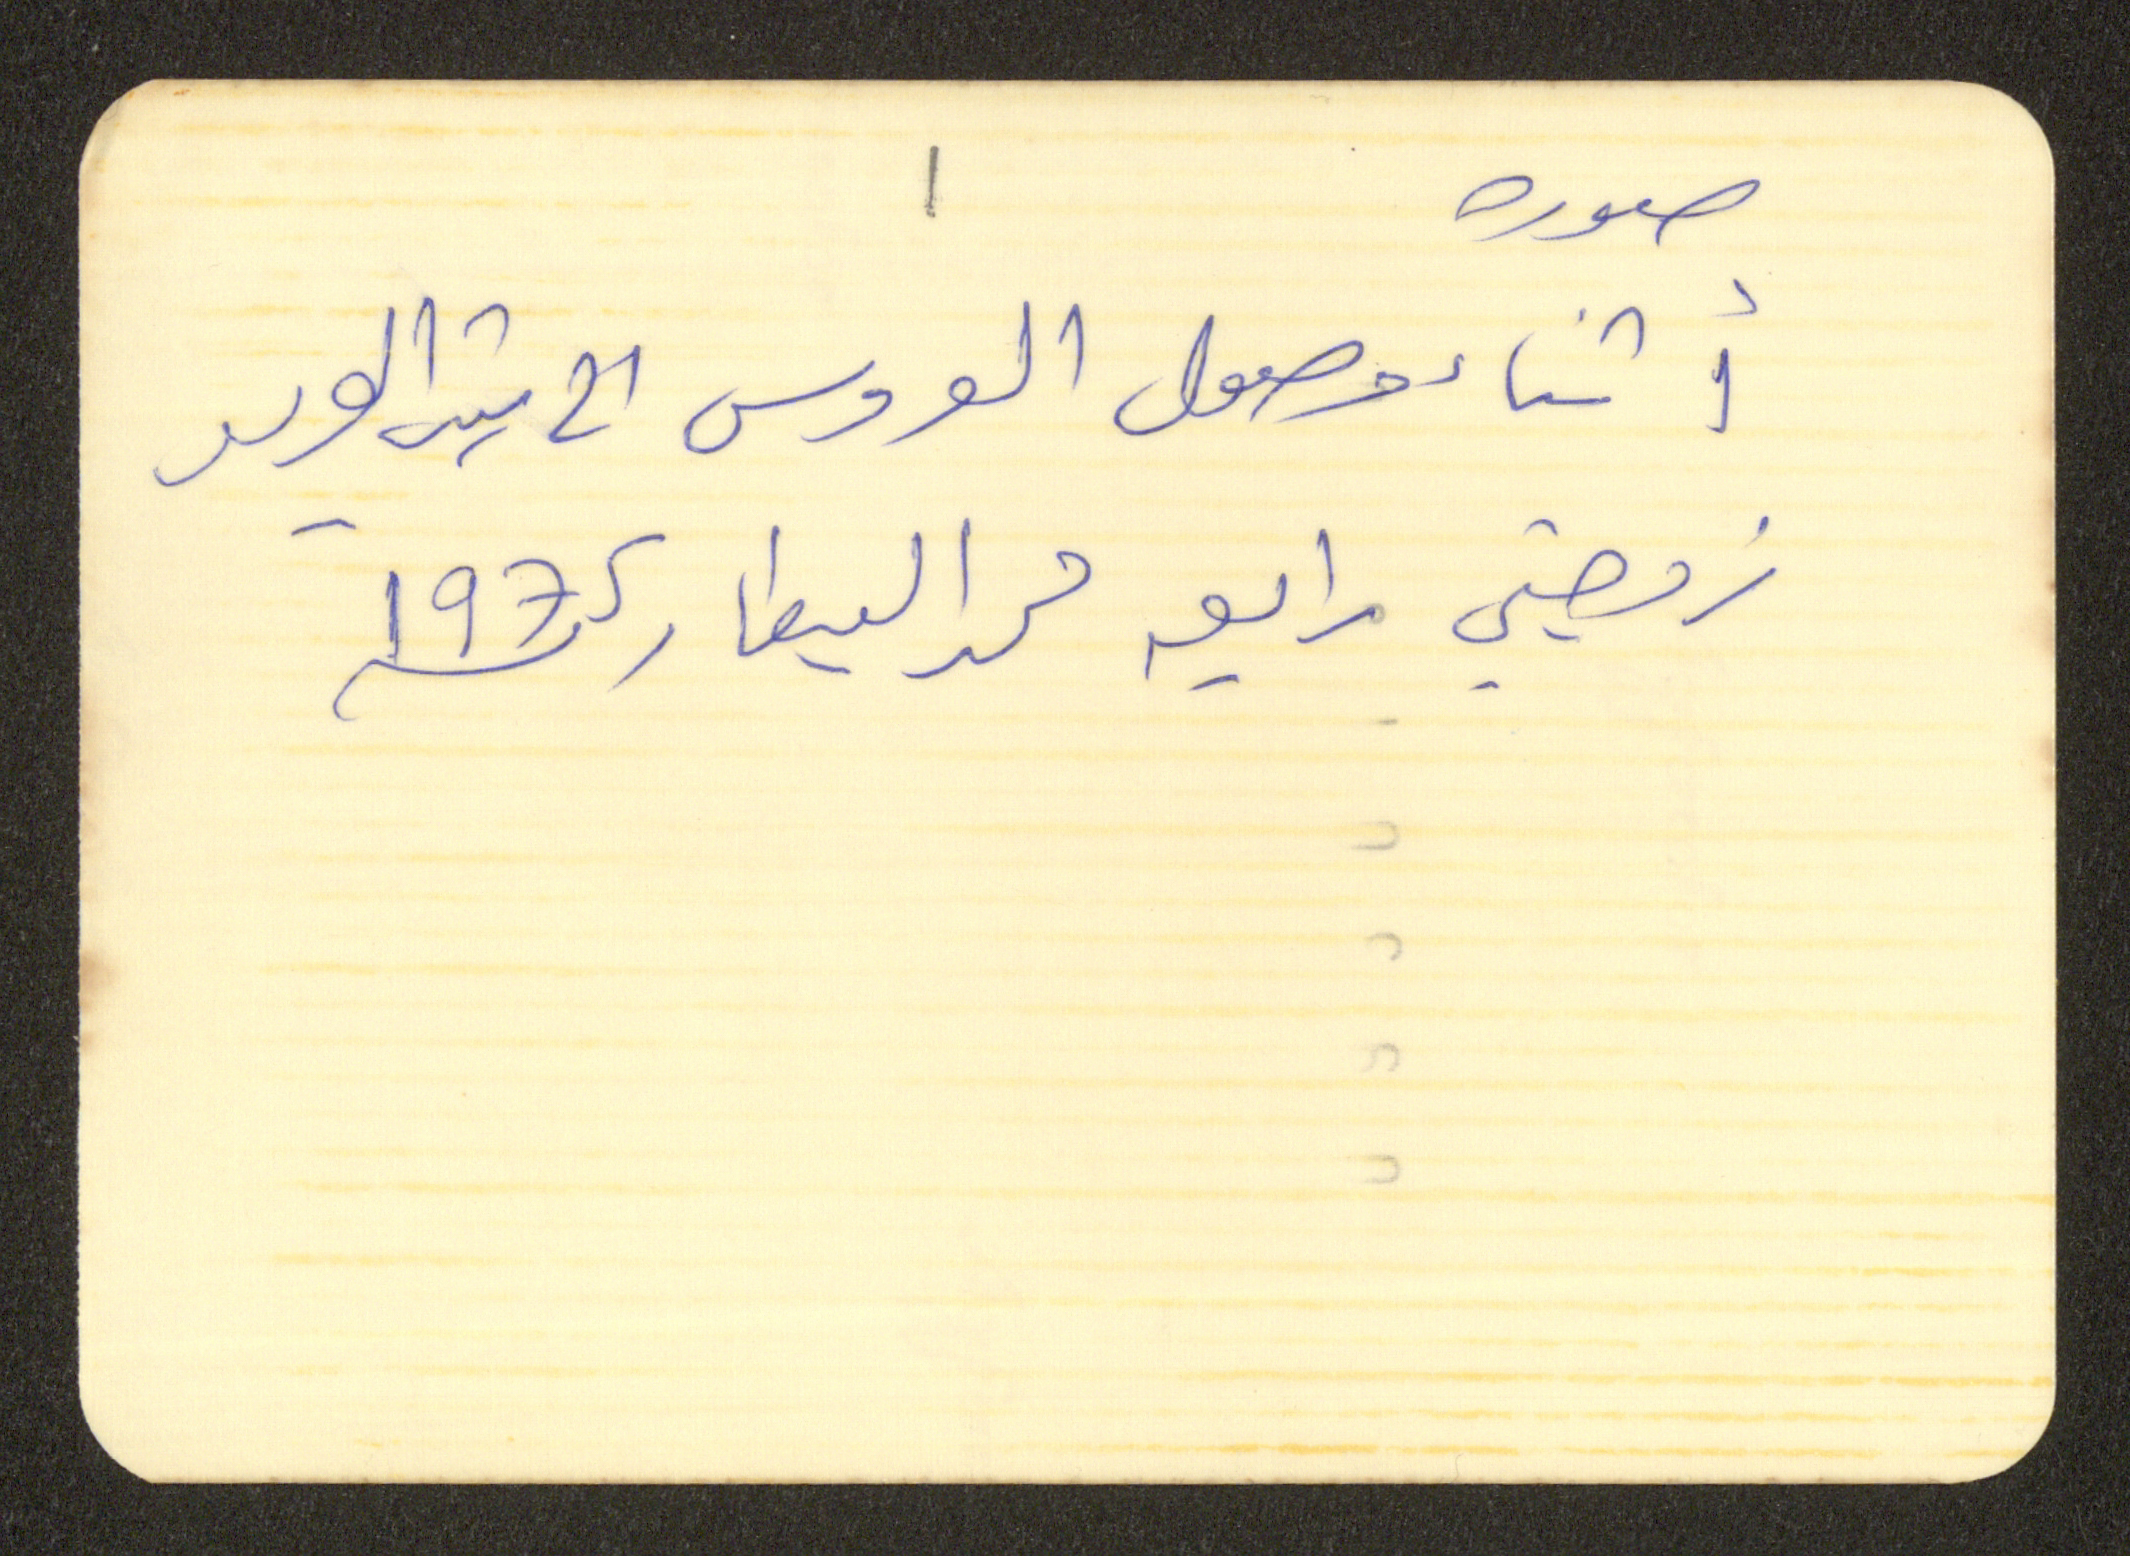 صوره
١
أثناء وصول العروس الى بيت العريس
زوجتي رابعه محمد البيطار 1975